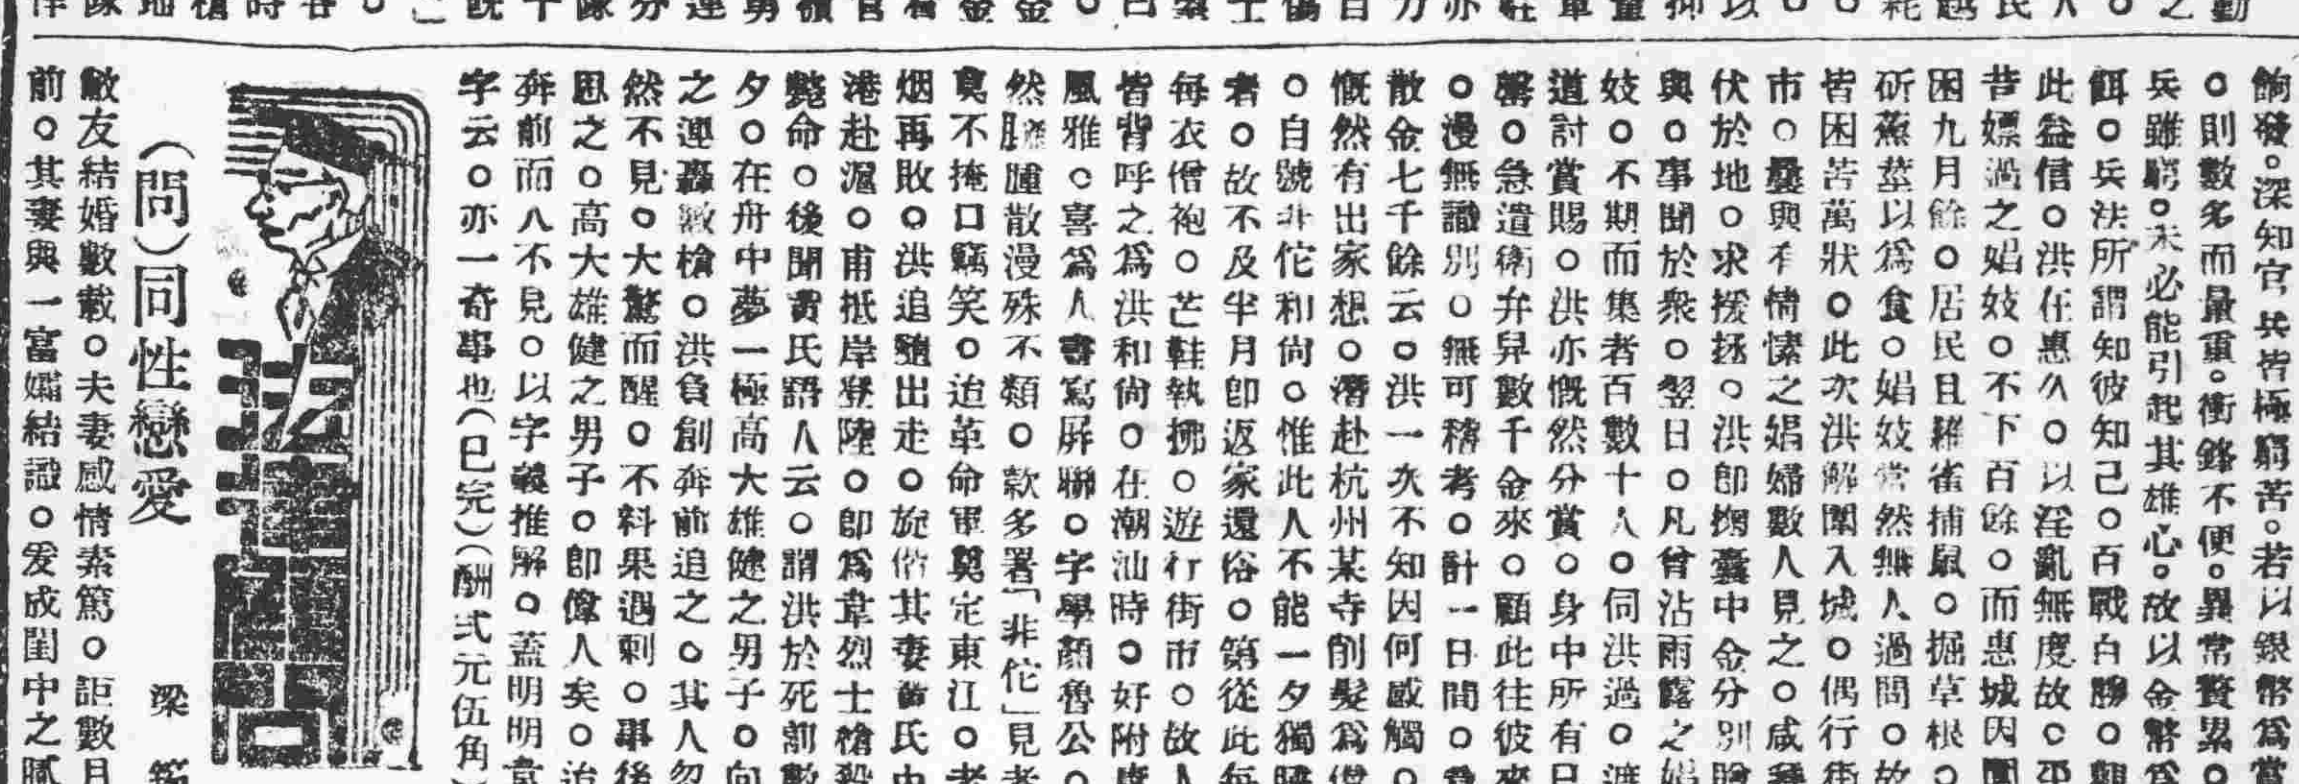 餉發。深知官兵皆極窮苦。若以銀幣爲賞
。則數多而量重。衝鋒不便。異常贅累。
兵雖窮。未必能引起其雄心。故以金幣爲
餌。兵法所謂知彼知己。百戰百勝。觀
此益信。洪在惠久。以淫亂無度故。平
昔嫖過之娼妓。不下百餘。而惠城因圍
困九月餘。居民且羅雀捕鼠。掘草根。
研蕉莖以爲食。娼妓當然無人過問。故
皆困苦萬狀。此次洪解圍入城。偶行街
市。曩與有情愫之娼婦數人見之。咸
伏於地。求援拯。洪卽搜囊中金分別
與。事聞於衆。翌日。凡曾沾雨露之娼
妓。不期而集者百數十人。伺洪過。遮
道討賞賜。洪亦慨然分賞。身中所有已
罄。急遣衛弁舁數千金來。顧此往彼來
。漫無識別。無可稽考。計一日間。
散金七千餘云。洪一次不知因何感觸。
慨然有出家想。潛赴杭州某寺削髮爲僧
。自號非佗和尙。惟此人不能一夕獨
者。故不及半月卽返家還俗。第從此每
每衣僧袍。芒鞋執拂。遊行街市。故人
皆背呼之爲洪和尙。在潮汕時。好附庸
風雅。喜爲人書寫屏聯。字學顏魯公。
然臃腫散漫殊不類。款多署「非佗」見者
莫不掩口竊笑。迨革命軍奠定東江。者
烟再敗。洪追隨出走。旋偕其妻黃氏由
港赴滬。甫抵岸登陸。卽爲韋烈士槍殺
斃命。後聞黃氏語人云。謂洪於死前數
夕。在舟中夢一極高大雄健之男子。向
之連轟數槍。洪負創奔前追之。其人忽
然不見。大驚而醒。不料果遇刺。事後
思之。高大雄健之男子。卽偉人矣。追
奔前而人不見。以字義推解。蓋明明韋
字云。亦一奇事也(已完)(酬弍元伍角)
(問)同性戀愛
梁
法
敝友結婚數載。夫妻感情素篤。詎數月
前。其妻與一富孀結識。爰成閨中之膩